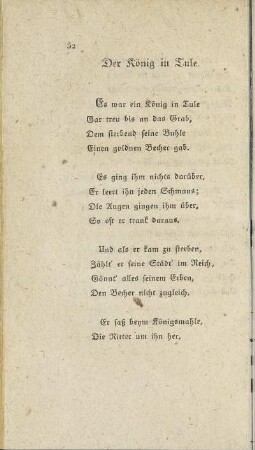 52
Der König in Tule.
Es war ein König in Tule
Gar treu bis an das Grab,
Dem sterbend seine Buhle
Einen goldnen Becher gab.
Es ging ihm nichts darüber,
Er leert ihn jeden Schmaus;
Die Augen gingen ihm über,
So oft er trank daraus.
Und als er kam zu sterben,
Zählt' er seine Städt' im Reich,
Gönnt' alles seinem Erben,
Den Becher nicht zugleich.
Er saß beym Königsmahle,
Die Ritter um ihn her,